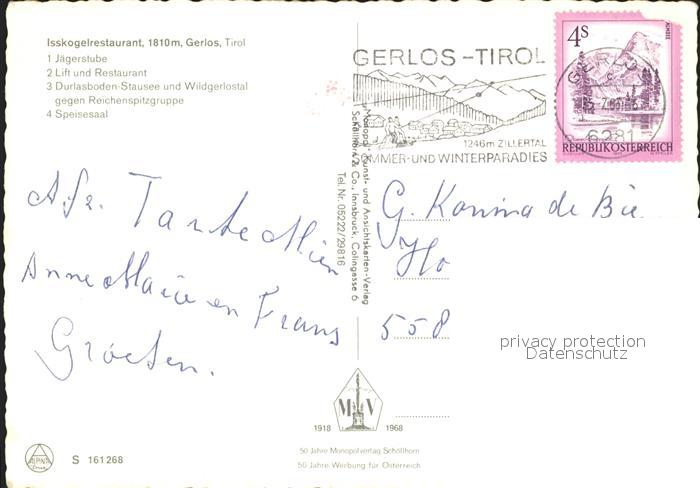 Isskogelrestaurant, 1810m, Gerlos, Tirol
1 Jägerstube
2 Lift und Restaurant
3 Durlasboden-Stausee und Wildgerlostal
gegen Reichenspitzgruppe
4 Speisesaal
GERLOS-TIROL
1246m ZILLERTAL
SOMMER-UND WINTERPARADIES
4S
GERLOS
6281
REPUBLIK ÖSTERREICH
„Monopol" Kunst- und Ansichtskarten-Verlag
Schöllhorn & Co., Innsbruck, Colingasse 6
Tel. Nr. 05222/29816
Afz. Tante Mien
Anne Marie en Frans
Groeten.
G. de
558
privacy protection
Datenschutz
M V
1918 1968
50 Jahre Monopolverlag Schöllhorn
50 Jahre Werbung für Österreich
ALPINA
S 161268